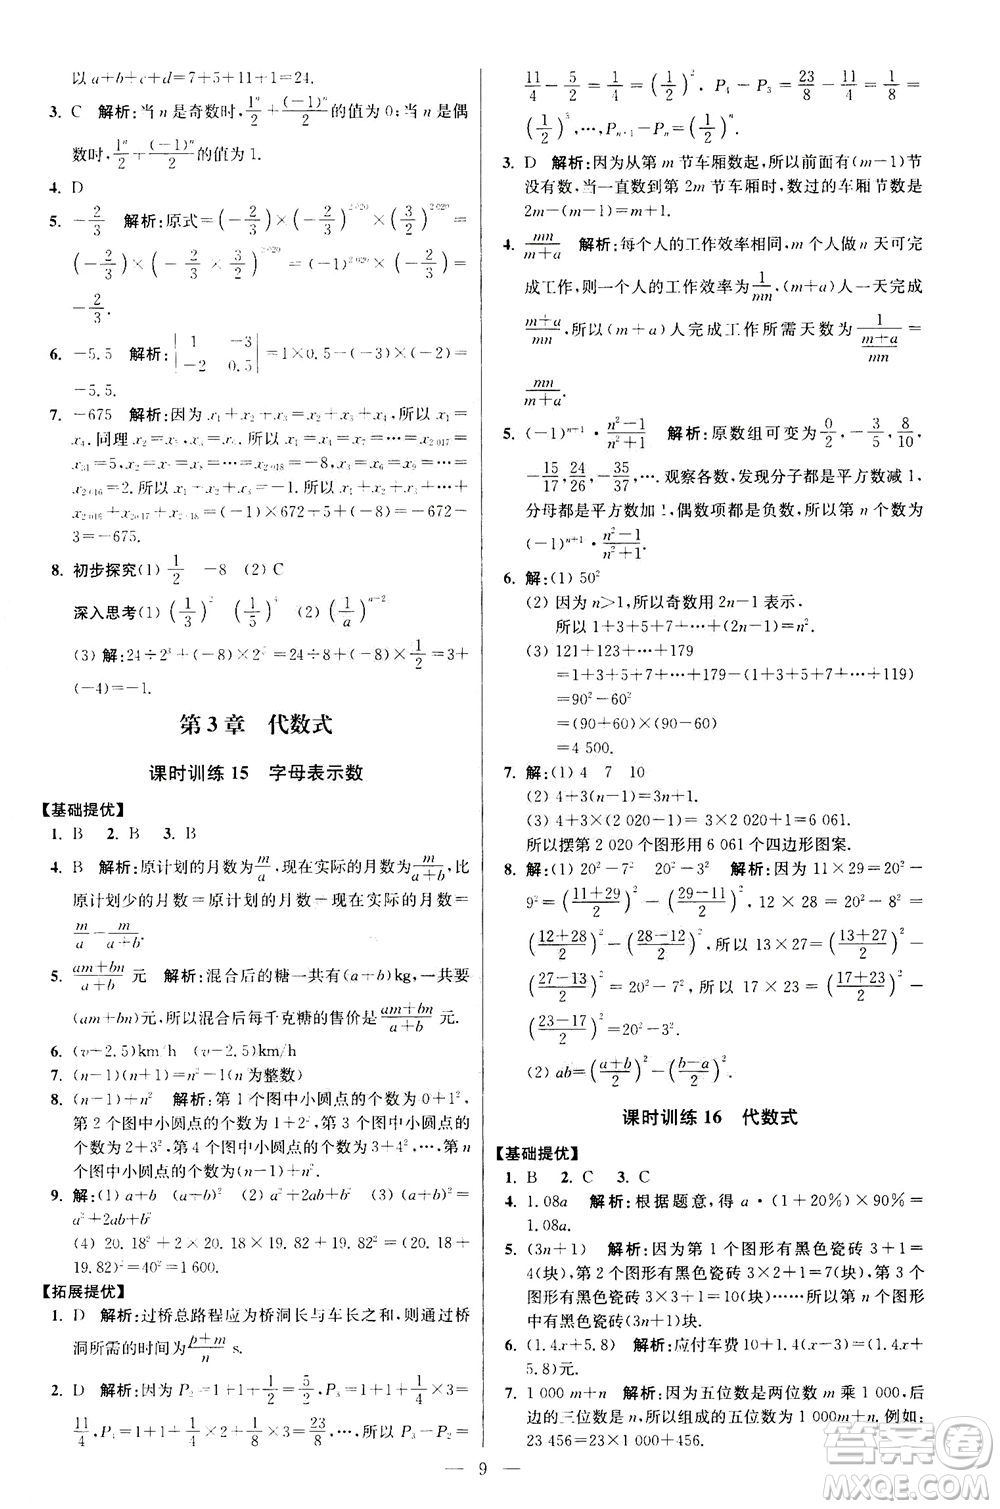 以 a+b+c+d=7+5+11+1=24.
3. C 解析:当 n 是奇数时,1ⁿ/2+(-1)ⁿ/2的值为 0;当 n 是偶
数时,1ⁿ/2+(-1)ⁿ/2的值为 1.
4. D
5. -2/3 解析:原式=(-2/3)×(-2/3)^2020×(3/2)^2020=
(-2/3)×(-2/3×3/2)^2020=(-1)^2020×(-2/3)=
-2/3.
6. -5.5 解析:|1 -3; -2 0.5|=1×0.5-(-3)×(-2)=
-5.5.
7. -675 解析:因为 x₁+x₂+x₃=x₂+x₃+x₄,所以 x₁=
x₄.同理 x₂=x₅,x₃=x₆.所以 x₁=x₄=…=x₂₀₁₇=
x₃₁=5,x₂=x₅=…=x₂₀₁₈=-8,x₃=x₆=…=
x₂₀₁₆=2.所以 x₁+x₂+x₃=-1.所以 x₁+x₂+…+
x₂₀₁₆+x₂₀₁₇+x₂₀₁₈=(-1)×672+5+(-8)=-672-
3=-675.
8. 初步探究(1) 1/2 -8 (2) C
深入思考(1) (1/3)² (1/5)⁴ (2) (1/a)ⁿ⁻²
(3) 解:24÷2³+(-8)×2⁻=24÷8+(-8)×1/2=3+
(-4)=-1.
第 3 章 代数式
课时训练 15 字母表示数
【基础提优】
1. B 2. B 3. B
4. B 解析:原计划的月数为m/a,现在实际的月数为m/(a+b),
提前完成的月数=原计划的月数-现在实际的月数=
m/a-m/(a+b).
5. (am+bn)/(a+b) 元 解析:混合后的糖一共有(a+b)kg,一共要
(am+bn)元,所以混合后每千克糖的售价是(am+bn)/(a+b)元.
6. (v+2.5)km/h (v-2.5)km/h
7. (n-1)(n+1)=n²-1(n 为整数)
8. (n-1)+n² 解析:第 1 个图中小圆点的个数为 0+1²,
第 2 个图中小圆点的个数为 1+2²,第 3 个图中小圆点的
个数为 2+3²,第 4 个图中小圆点的个数为 3+4²,…,第 n
个图中小圆点的个数为(n-1)+n².
9. 解:(1) a+b (2) a²+2ab+b² (3) (a+b)²=
a²+2ab+b²
(4) 20.18²+2×20.18×19.82+19.82²=(20.18+
19.82)²=40²=1 600.
【拓展提优】
1. D 解析:过桥总路程应为桥洞长与车长之和,则通过桥
洞所需的时间为(p+m)/n s.
2. D 解析:因为 P₂-P₁=1+1/2-1=1/2,P₃-P₂=
11/4-5/2=1/4=(1/2)²,P₄-P₃=23/8-11/4=1/8=
(1/2)³,…,Pₙ₊₁-Pₙ=(1/2)ⁿ.
3. D 解析:因为从第 m 节车厢数起,所以前面有(m-1)节
没有数,当一直数到第 2m 节车厢时,数过的车厢节数是
2m-(m-1)=m+1.
4. mn/(m+a) 解析:每个人的工作效率相同,m 个人做 n 天可完
成工作,则一个人的工作效率为1/mn,(m+a)人一天完成
(m+a)/mn,所以(m+a)人完成工作所需天数为1/((m+a)/mn)=
mn/(m+a).
5. (-1)ⁿ⁺¹·(n²-1)/(n²+1) 解析:原数组可变为0/2,-3/5,8/10,
-15/17,24/26,-35/37,….观察各数,发现分子都是平方数减 1,
分母为平方数加 1,偶数项都是负数,所以第 n 个数为
(-1)ⁿ⁺¹·(n²-1)/(n²+1).
6. 解:(1) 50²
(2) 因为 n>1,所以奇数用 2n-1 表示.
所以 1+3+5+7+…+(2n-1)=n².
(3) 121+123+…+179
=1+3+5+7+…+179-(1+3+5+7+…+119)
=90²-60²
=(90+60)×(90-60)
=4 500.
7. 解:(1) 4 7 10
(2) 4+3(n-1)=3n+1.
(3) 4+3×(2 020-1)=3×2 020+1=6 061.
所以摆第 2 020 个图形用 6 061 个四边形图案.
8. 解:(1) 20²-7² 20²-3² 解析:因为 11×29=20²-
9²=((11+29)/2)²-((29-11)/2)²,12×28=20²-8²=
((12+28)/2)²-((28-12)/2)²,所以 13×27=((13+27)/2)²-
((27-13)/2)²=20²-7²,所以 17×23=((17+23)/2)²-
((23-17)/2)²=20²-3².
(2) ab=((a+b)/2)²-((b-a)/2)².
课时训练 16 代数式
【基础提优】
1. B 2. C 3. C
4. 1.08a 解析:根据题意,得 a·(1+20%)×90%=
1.08a.
5. (3n+1) 解析:因为第 1 个图形有黑色瓷砖 3+1=
4(块),第 2 个图形有黑色瓷砖 3×2+1=7(块),第 3 个图
形有黑色瓷砖 3×3+1=10(块)……所以第 n 个图形有
黑色瓷砖(3n+1)块.
6. (1.4x+5.8) 解析:应付车费 10+1.4(x-3)=(1.4x+
5.8)元.
7. 1 000m+n 解析:因为五位数是两位数 m 乘 1 000,后
边的三位数是 n,所以组成的五位数为 1 000m+n.例如:
23 456=23×1 000+456.
— 9 —
答案圈
MXQE.COM